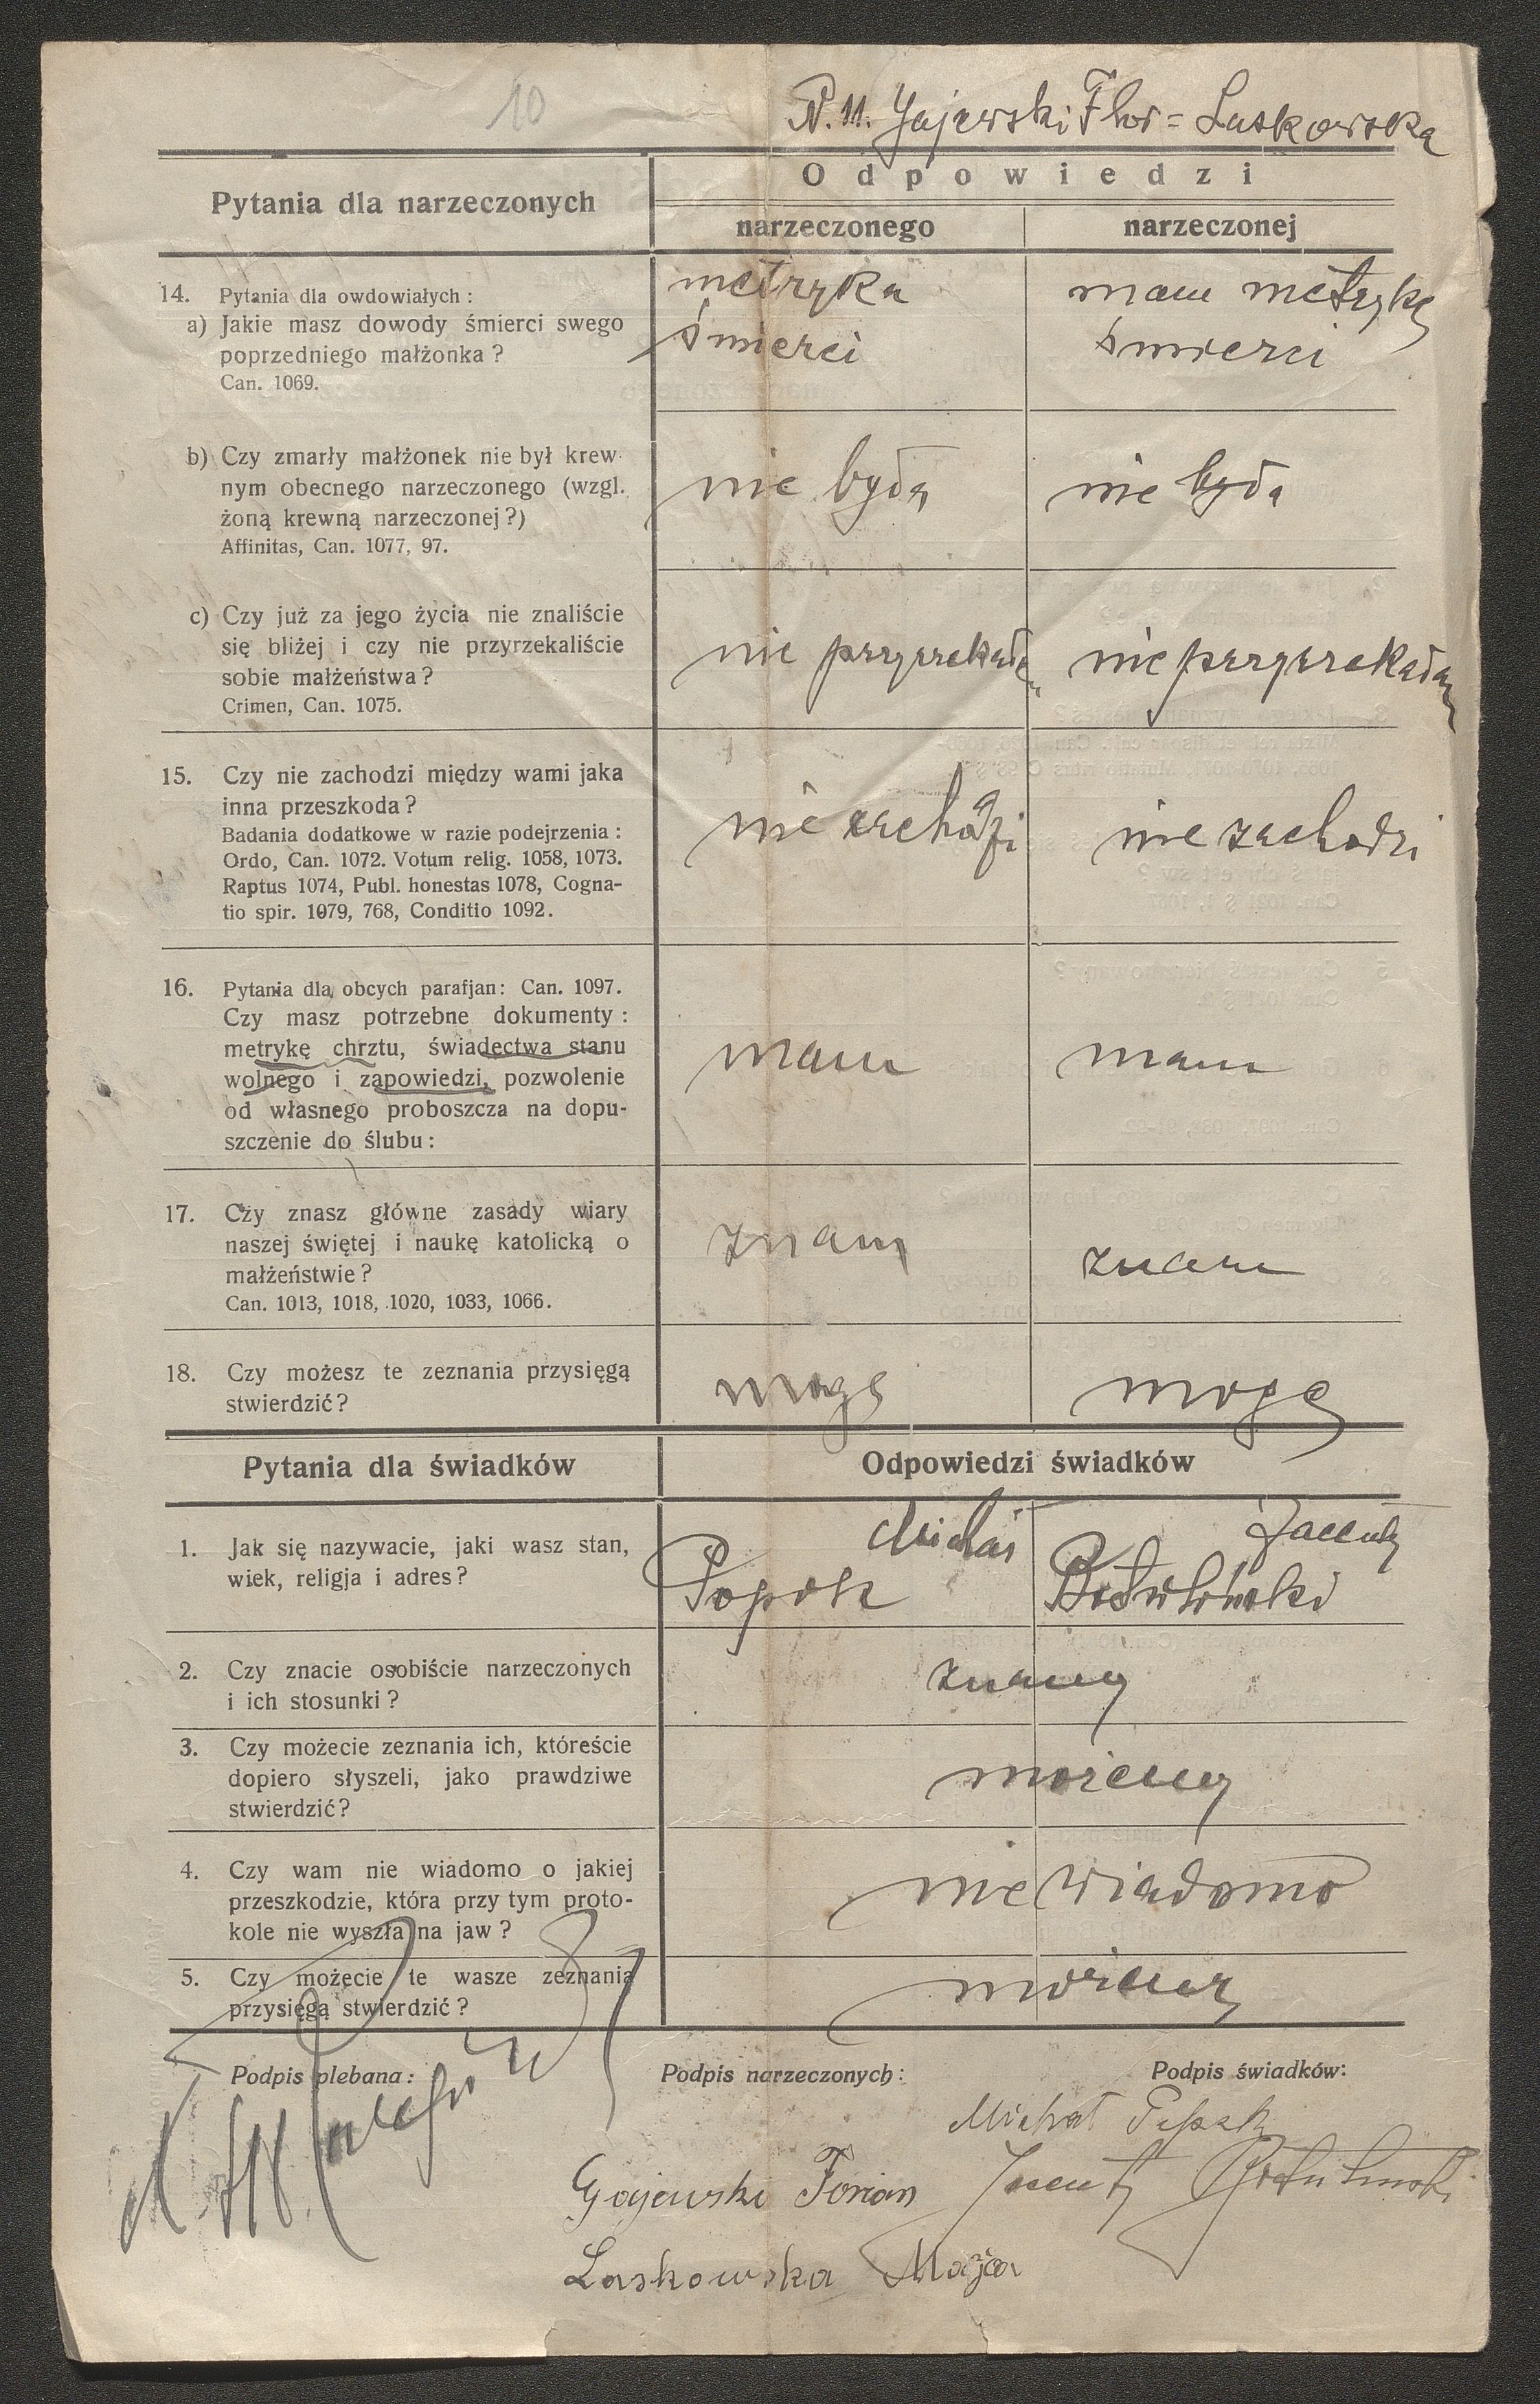 10
N. 11. Gajewski Flor = Laskowska
Pytania dla narzeczonych
Odpowiedzi
narzeczonego
narzeczonej
14. Pytania dla owdowiałych:
a) Jakie masz dowody śmierci swego
poprzedniego małżonka?
Can. 1069.
metryka
śmierci
mam metrykę
śmierci
b) Czy zmarły małżonek nie był krew-
nym obecnego narzeczonego (wzgl.
żoną krewną narzeczonej?)
Affinitas, Can. 1077, 97.
nie była
nie była
c) Czy już za jego życia nie znaliście
się bliżej i czy nie przyrzekaliście
sobie małżeństwa?
Crimen, Can. 1075.
nie przyrzekałem
nie przyrzekałam
15. Czy nie zachodzi między wami jaka
inna przeszkoda?
Badania dodatkowe w razie podejrzenia:
Ordo, Can. 1072. Votum relig. 1058, 1073.
Raptus 1074, Publ. honestas 1078, Cogna-
tio spir. 1079, 768, Conditio 1092.
nie zachodzi
nie zachodzi
16. Pytania dla obcych parafjan: Can. 1097.
Czy masz potrzebne dokumenty:
metrykę chrztu, świadectwa stanu
wolnego i zapowiedzi, pozwolenie
od własnego proboszcza na dopu-
szczenie do ślubu:
mam
mam
17. Czy znasz główne zasady wiary
naszej świętej i naukę katolicką o
małżeństwie?
Can. 1013, 1018, 1020, 1033, 1066.
znam
znam
18. Czy możesz te zeznania przysięgą
stwierdzić?
mogę
mogę
Pytania dla świadków
Odpowiedzi świadków
1. Jak się nazywacie, jaki wasz stan,
wiek, religja i adres?
Michał
Popek
2. Czy znacie osobiście narzeczonych
i ich stosunki?
znamy
3. Czy możecie zeznania ich, któreście
dopiero słyszeli, jako prawdziwe
stwierdzić?
możemy
4. Czy wam nie wiadomo o jakiej
przeszkodzie, która przy tym proto-
kole nie wyszła na jaw?
nie wiadomo
5. Czy możecie te wasze zeznania
przysięgą stwierdzić?
możemy
Podpis plebana:
Podpis narzeczonych:
Podpis świadków:
Michał
Gajewski Forian
Laskowska